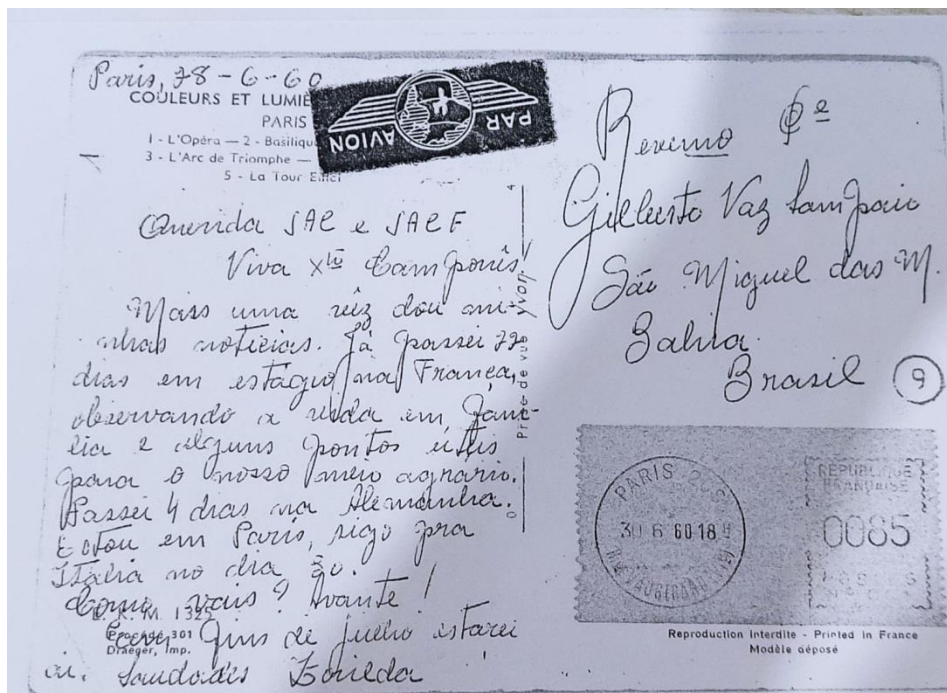 Paris, 28-6-60
COULEURS ET LUMIÈ
PARIS
1 - L'Opéra — 2 - Basiliqu
3 - L'Arc de Triomphe —
5 - La Tour Eiffel
PAR AVION
Querida SAC e SACF
Viva Xto Camponês
Mais uma vêz dou mi-
nhas noticias. Já passei 22
dias em estágio na França,
observando a vida em famí-
lia e alguns pontos útis
para o nosso meio agrario.
Passei 4 dias na Alemanha.
Estou em Paris, sigo pra
Itália no dia 30.
Como vais? Avante!
E. K. M. 1325
Procédé 301
Draeger, Imp.
fins de julho estarei
ai. Saudades
Prise de vue Yvon
Revmo Pe
Gilberto Vaz Sampaio
São Miguel das M.
Bahia
Brasil
9
PARIS
30 6 60 18
RÉPUBLIQUE
FRANÇAISE
0085
POSTES
Reproduction interdite - Printed in France
Modèle déposé